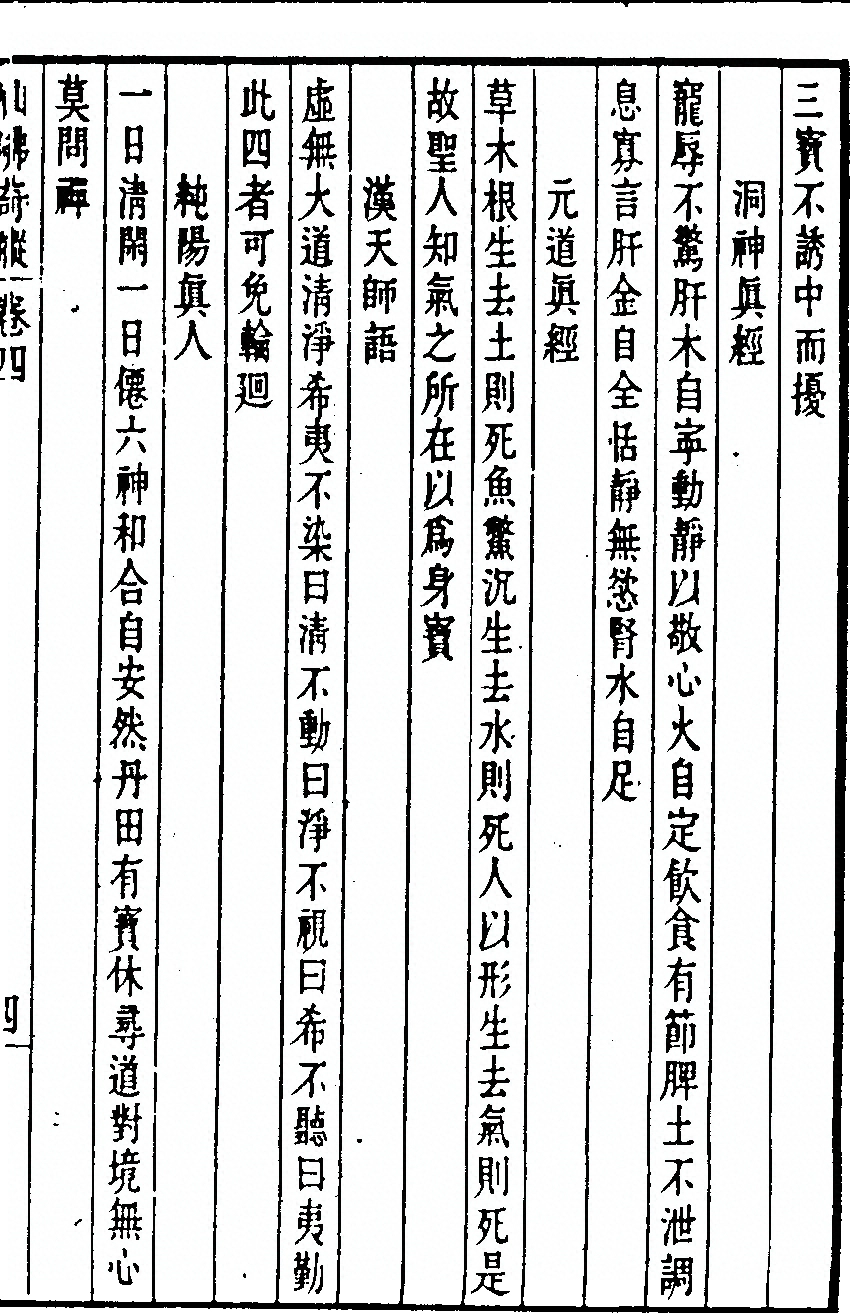 三寶不誘中而擾
洞神眞經
寵辱不驚肝木自寧動靜以敬心火自定飲食有節脾土不泄調
息寡言肝金自全恬靜無慾腎水自足
元道眞經
草木根生去土則死魚鱉沉生去水則死人以形生去氣則死是
故聖人知氣之所在以爲身寶
漢天師語
虛無大道清淨希夷不染曰清不動曰淨不視曰希不聽曰夷勤
此四者可免輪廻
純陽眞人
一日清閑一日僊六神和合自安然丹田有寶休尋道對境無心
莫問禪
仙佛奇蹤 卷四 四